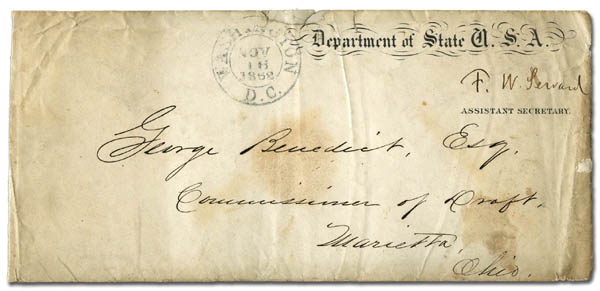 WASHINGTON
NOV
18
1862
D.C.
Department of State U.S.A.
F. W. Seward
ASSISTANT SECRETARY.
George Benedict, Esq.
Commissioner of Draft,
Marietta,
Ohio.